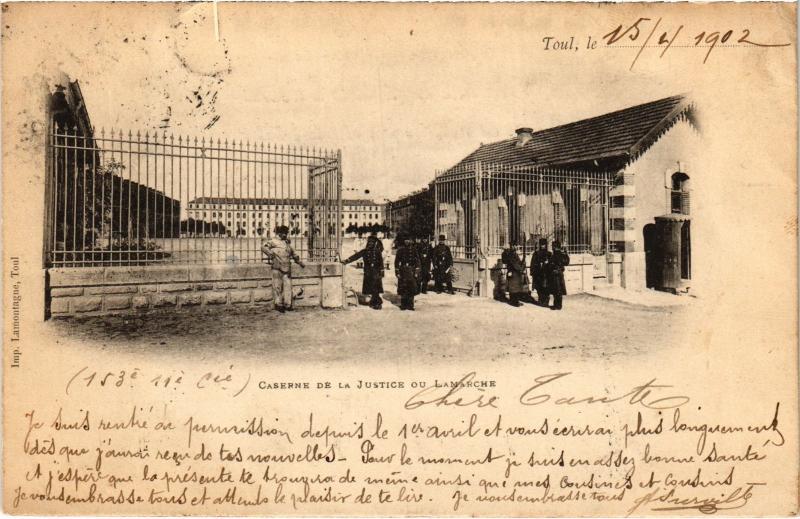 Toul, le 15/4 1902
Imp. Lamontagne, Toul
(153è 11è Cie)
CASERNE DE LA JUSTICE OU LAMARCHE
Chère Tante
Je suis rentré de permission depuis le 1er avril et vous écrirai plus longuement
dès que j'aurai reçu de tes nouvelles - Pour le moment je suis en assez bonne santé
et j'espère que la présente te trouvera de même ainsi que mes cousines et cousins
Je vous embrasse tous et attends le plaisir de te lire. Je vous embrasse tous